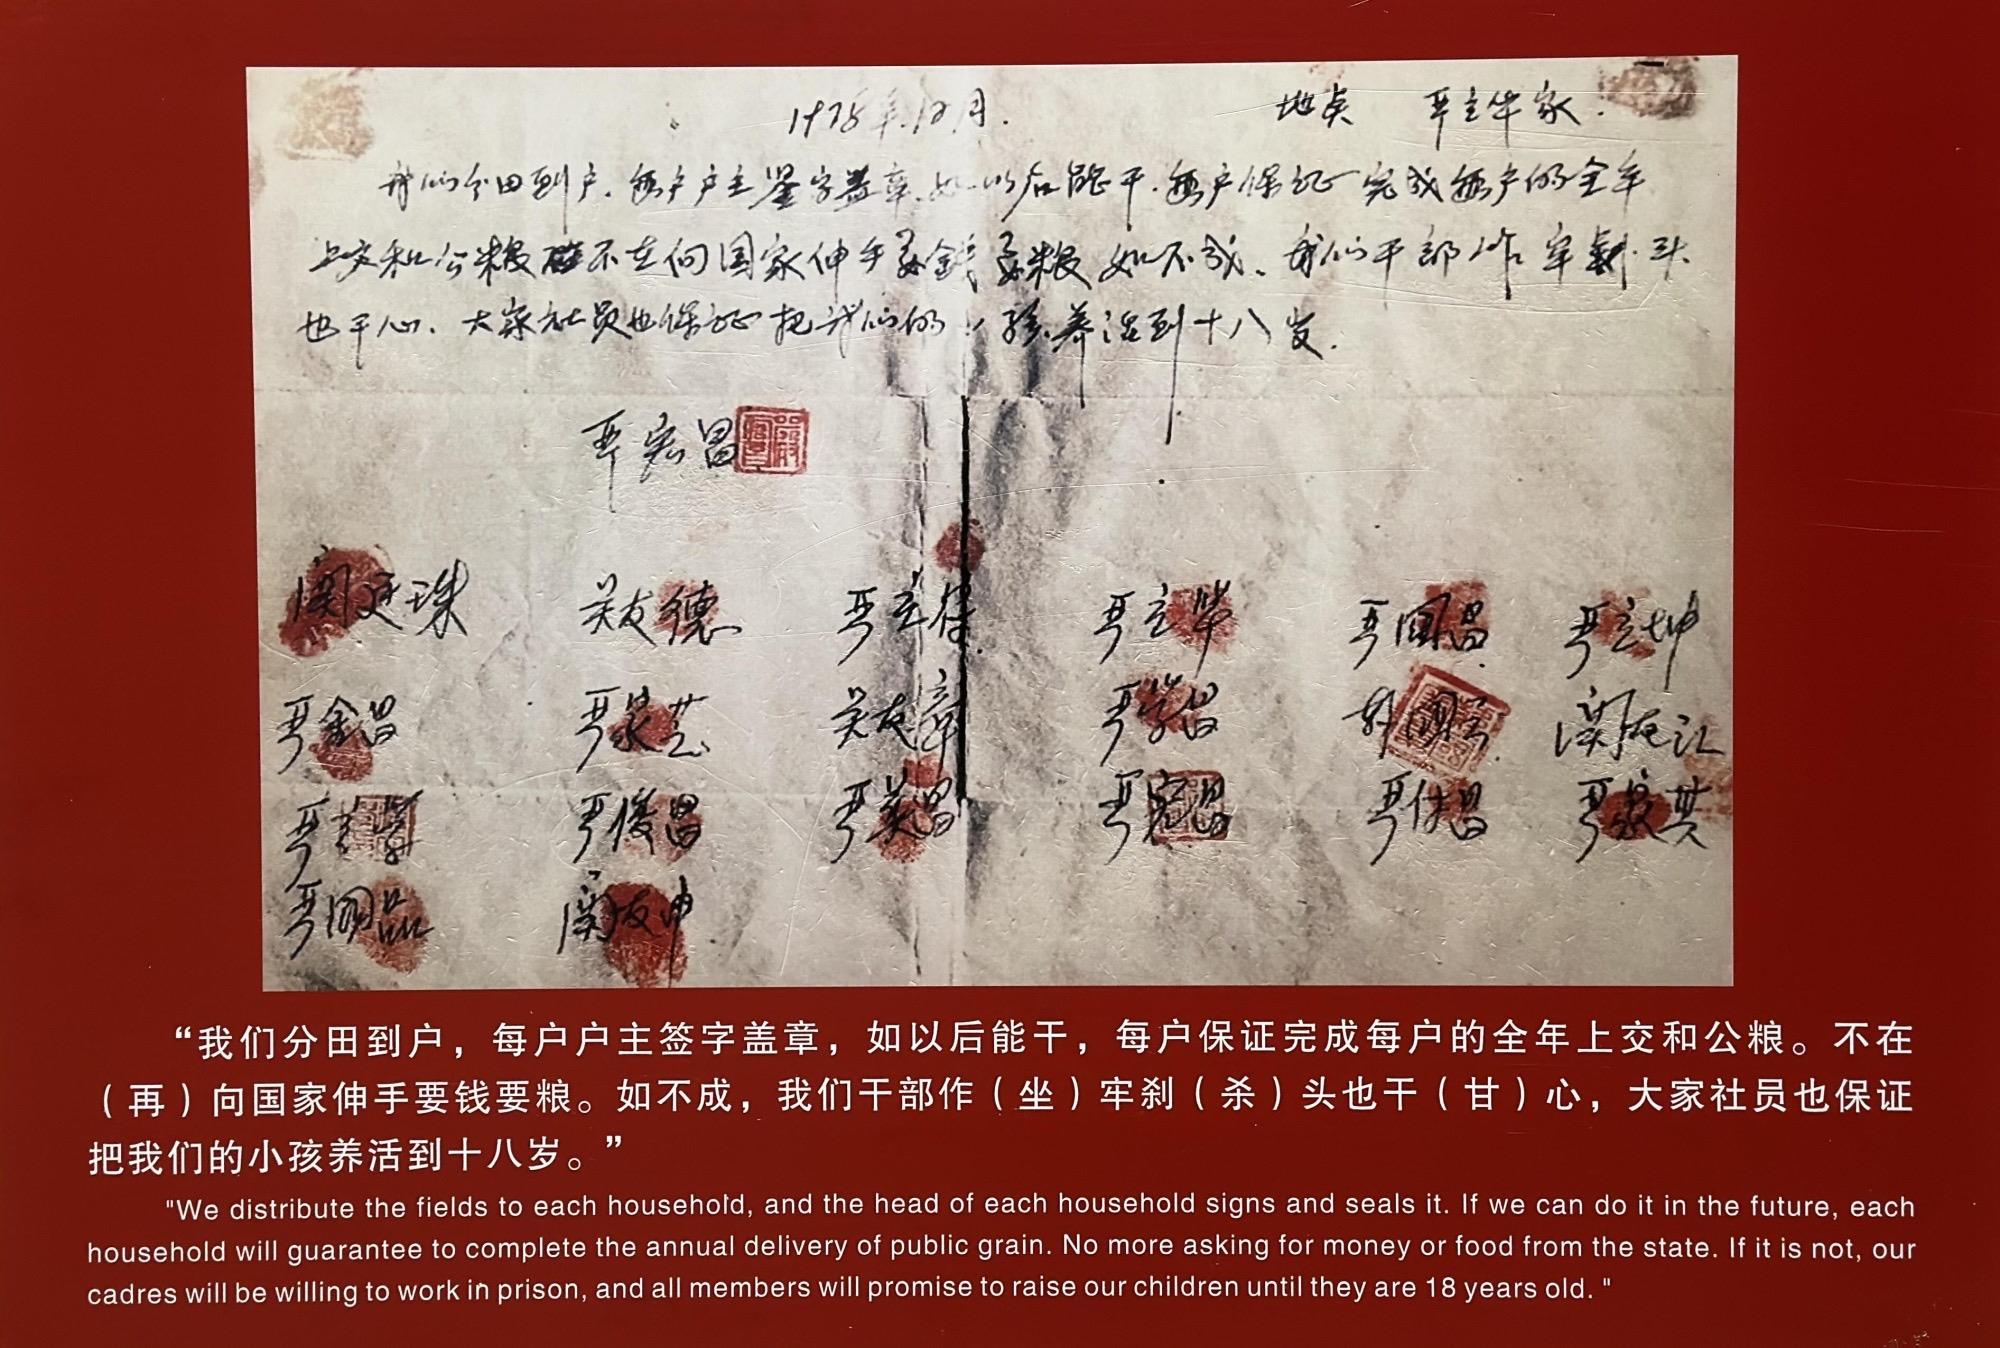 1978年.12月.
地点 严立华家.
我们分田到户.每户户主鉴字盖章.如以后能干.每户保证完成每户的全年
上交和公粮 不在向国家伸手要钱要粮如不成.我们干部作牢刹头
也干心.大家社员也保证把我们的小孩养活到十八岁.
严宏昌
关廷珠 关友德 严立付 严立华 严国昌 严立坤
严金昌 严家芝 关友章 严学昌 韩国云 关友江
严立学 严俊昌 严美昌 严宏昌 严付昌 严家其
严国品 关友申
“我们分田到户，每户户主签字盖章，如以后能干，每户保证完成每户的全年上交和公粮。不在
（再）向国家伸手要钱要粮。如不成，我们干部作（坐）牢刹（杀）头也干（甘）心，大家社员也保证
把我们的小孩养活到十八岁。”
"We distribute the fields to each household, and the head of each household signs and seals it. If we can do it in the future, each
household will guarantee to complete the annual delivery of public grain. No more asking for money or food from the state. If it is not, our
cadres will be willing to work in prison, and all members will promise to raise our children until they are 18 years old. "